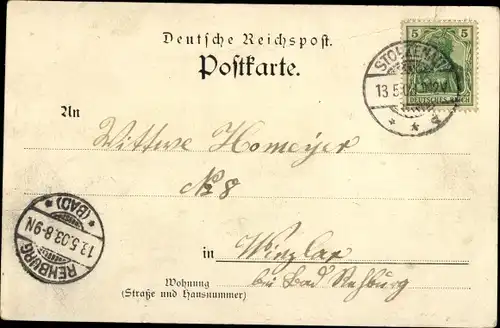 Deutsche Reichspost.
Postkarte.
5 5
DEUTSCHES REICH
STOLZENAU
13.5.03
An
Wittwe Homeyer
No 8
REHBURG
13.5.03.8-9N
* (BAD) *
in Winzlar
Wohnung
bei Bad Rehburg
(Straße und Hausnummer)